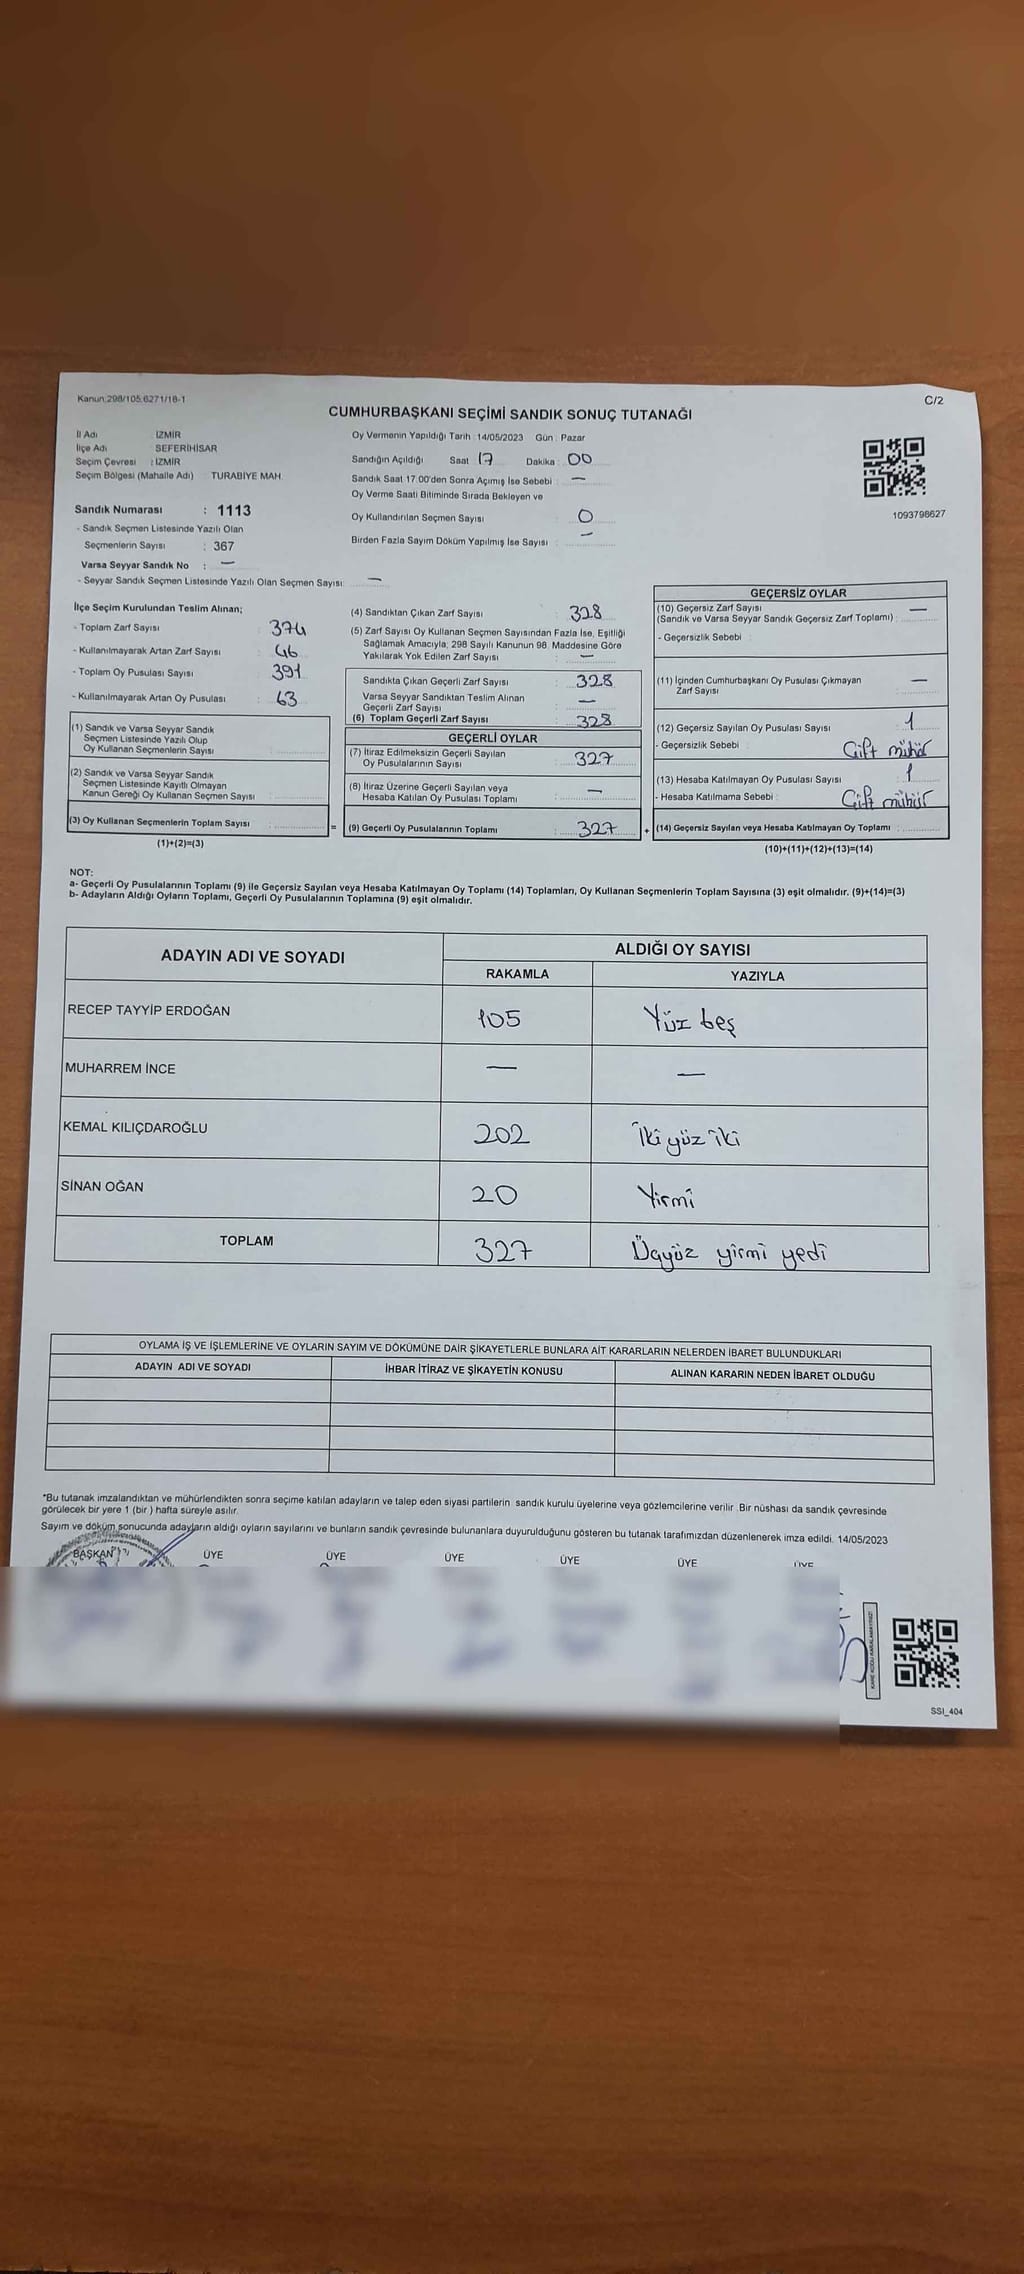 Kanun:298/105;6271/18-1
C/2
CUMHURBAŞKANI SEÇİMİ SANDIK SONUÇ TUTANAĞI
İl Adı İZMİR
İlçe Adı SEFERİHİSAR
Seçim Çevresi : İZMİR
Seçim Bölgesi (Mahalle Adı) : TURABİYE MAH.
Sandık Numarası : 1113
- Sandık Seçmen Listesinde Yazılı Olan
Seçmenlerin Sayısı : 367
Varsa Seyyar Sandık No : —
- Seyyar Sandık Seçmen Listesinde Yazılı Olan Seçmen Sayısı: —
Oy Vermenin Yapıldığı Tarih : 14/05/2023 Gün : Pazar
Sandığın Açıldığı Saat 17 Dakika : 00
Sandık Saat 17:00'den Sonra Açımış İse Sebebi : —
Oy Verme Saati Bitiminde Sırada Bekleyen ve
Oy Kullandırılan Seçmen Sayısı : 0
Birden Fazla Sayım Döküm Yapılmış İse Sayısı : —
1093798627
İlçe Seçim Kurulundan Teslim Alınan;
- Toplam Zarf Sayısı : 374
- Kullanılmayarak Artan Zarf Sayısı : 46
- Toplam Oy Pusulası Sayısı : 391
- Kullanılmayarak Artan Oy Pusulası : 63
(1) Sandık ve Varsa Seyyar Sandık
Seçmen Listesinde Yazılı Olup
Oy Kullanan Seçmenlerin Sayısı :
(2) Sandık ve Varsa Seyyar Sandık
Seçmen Listesinde Kayıtlı Olmayan
Kanun Gereği Oy Kullanan Seçmen Sayısı :
(3) Oy Kullanan Seçmenlerin Toplam Sayısı :
(1)+(2)=(3)
(4) Sandıktan Çıkan Zarf Sayısı : 328
(5) Zarf Sayısı Oy Kullanan Seçmen Sayısından Fazla İse, Eşitliği
Sağlamak Amacıyla, 298 Sayılı Kanunun 98. Maddesine Göre
Yakılarak Yok Edilen Zarf Sayısı : —
Sandıkta Çıkan Geçerli Zarf Sayısı : 328
Varsa Seyyar Sandıktan Teslim Alınan
Geçerli Zarf Sayısı : —
(6) Toplam Geçerli Zarf Sayısı : 328
GEÇERLİ OYLAR
(7) İtiraz Edilmeksizin Geçerli Sayılan
Oy Pusulalarının Sayısı : 327
(8) İtiraz Üzerine Geçerli Sayılan veya
Hesaba Katılan Oy Pusulası Toplamı : —
= (9) Geçerli Oy Pusulalarının Toplamı : 327 +
GEÇERSİZ OYLAR
(10) Geçersiz Zarf Sayısı
(Sandık ve Varsa Seyyar Sandık Geçersiz Zarf Toplamı) : —
- Geçersizlik Sebebi :
(11) İçinden Cumhurbaşkanı Oy Pusulası Çıkmayan
Zarf Sayısı : —
(12) Geçersiz Sayılan Oy Pusulası Sayısı : 1
- Geçersizlik Sebebi : Çift mühür
(13) Hesaba Katılmayan Oy Pusulası Sayısı : 1
- Hesaba Katılmama Sebebi : Çift mühür
(14) Geçersiz Sayılan veya Hesaba Katılmayan Oy Toplamı :
(10)+(11)+(12)+(13)=(14)
NOT:
a- Geçerli Oy Pusulalarının Toplamı (9) ile Geçersiz Sayılan veya Hesaba Katılmayan Oy Toplamı (14) Toplamları, Oy Kullanan Seçmenlerin Toplam Sayısına (3) eşit olmalıdır. (9)+(14)=(3)
b- Adayların Aldığı Oyların Toplamı, Geçerli Oy Pusulalarının Toplamına (9) eşit olmalıdır.
ADAYIN ADI VE SOYADI ALDIĞI OY SAYISI
RAKAMLA YAZIYLA
RECEP TAYYİP ERDOĞAN 105 Yüz beş
MUHARREM İNCE — —
KEMAL KILIÇDAROĞLU 202 İki yüz iki
SİNAN OĞAN 20 Yirmi
TOPLAM 327 Üçyüz yirmi yedi
OYLAMA İŞ VE İŞLEMLERİNE VE OYLARIN SAYIM VE DÖKÜMÜNE DAİR ŞİKAYETLERLE BUNLARA AİT KARARLARIN NELERDEN İBARET BULUNDUKLARI
ADAYIN ADI VE SOYADI İHBAR İTİRAZ VE ŞİKAYETİN KONUSU ALINAN KARARIN NEDEN İBARET OLDUĞU
*Bu tutanak imzalandıktan ve mühürlendikten sonra seçime katılan adayların ve talep eden siyasi partilerin sandık kurulu üyelerine veya gözlemcilerine verilir. Bir nüshası da sandık çevresinde
görülecek bir yere 1 (bir ) hafta süreyle asılır.
Sayım ve döküm sonucunda adayların aldığı oyların sayılarını ve bunların sandık çevresinde bulunanlara duyurulduğunu gösteren bu tutanak tarafımızdan düzenlenerek imza edildi. 14/05/2023
BAŞKAN ÜYE ÜYE ÜYE ÜYE ÜYE ÜYE
KARE KODU KARALAMAYINIZ!
SSI_404